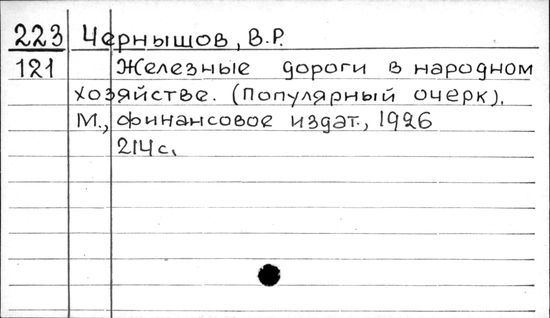 223 Чернышов, В.Р.
121 Железные дороги в народном
хозяйстве. (Популярный очерк).
М., финансовое издат., 1926
214 с.